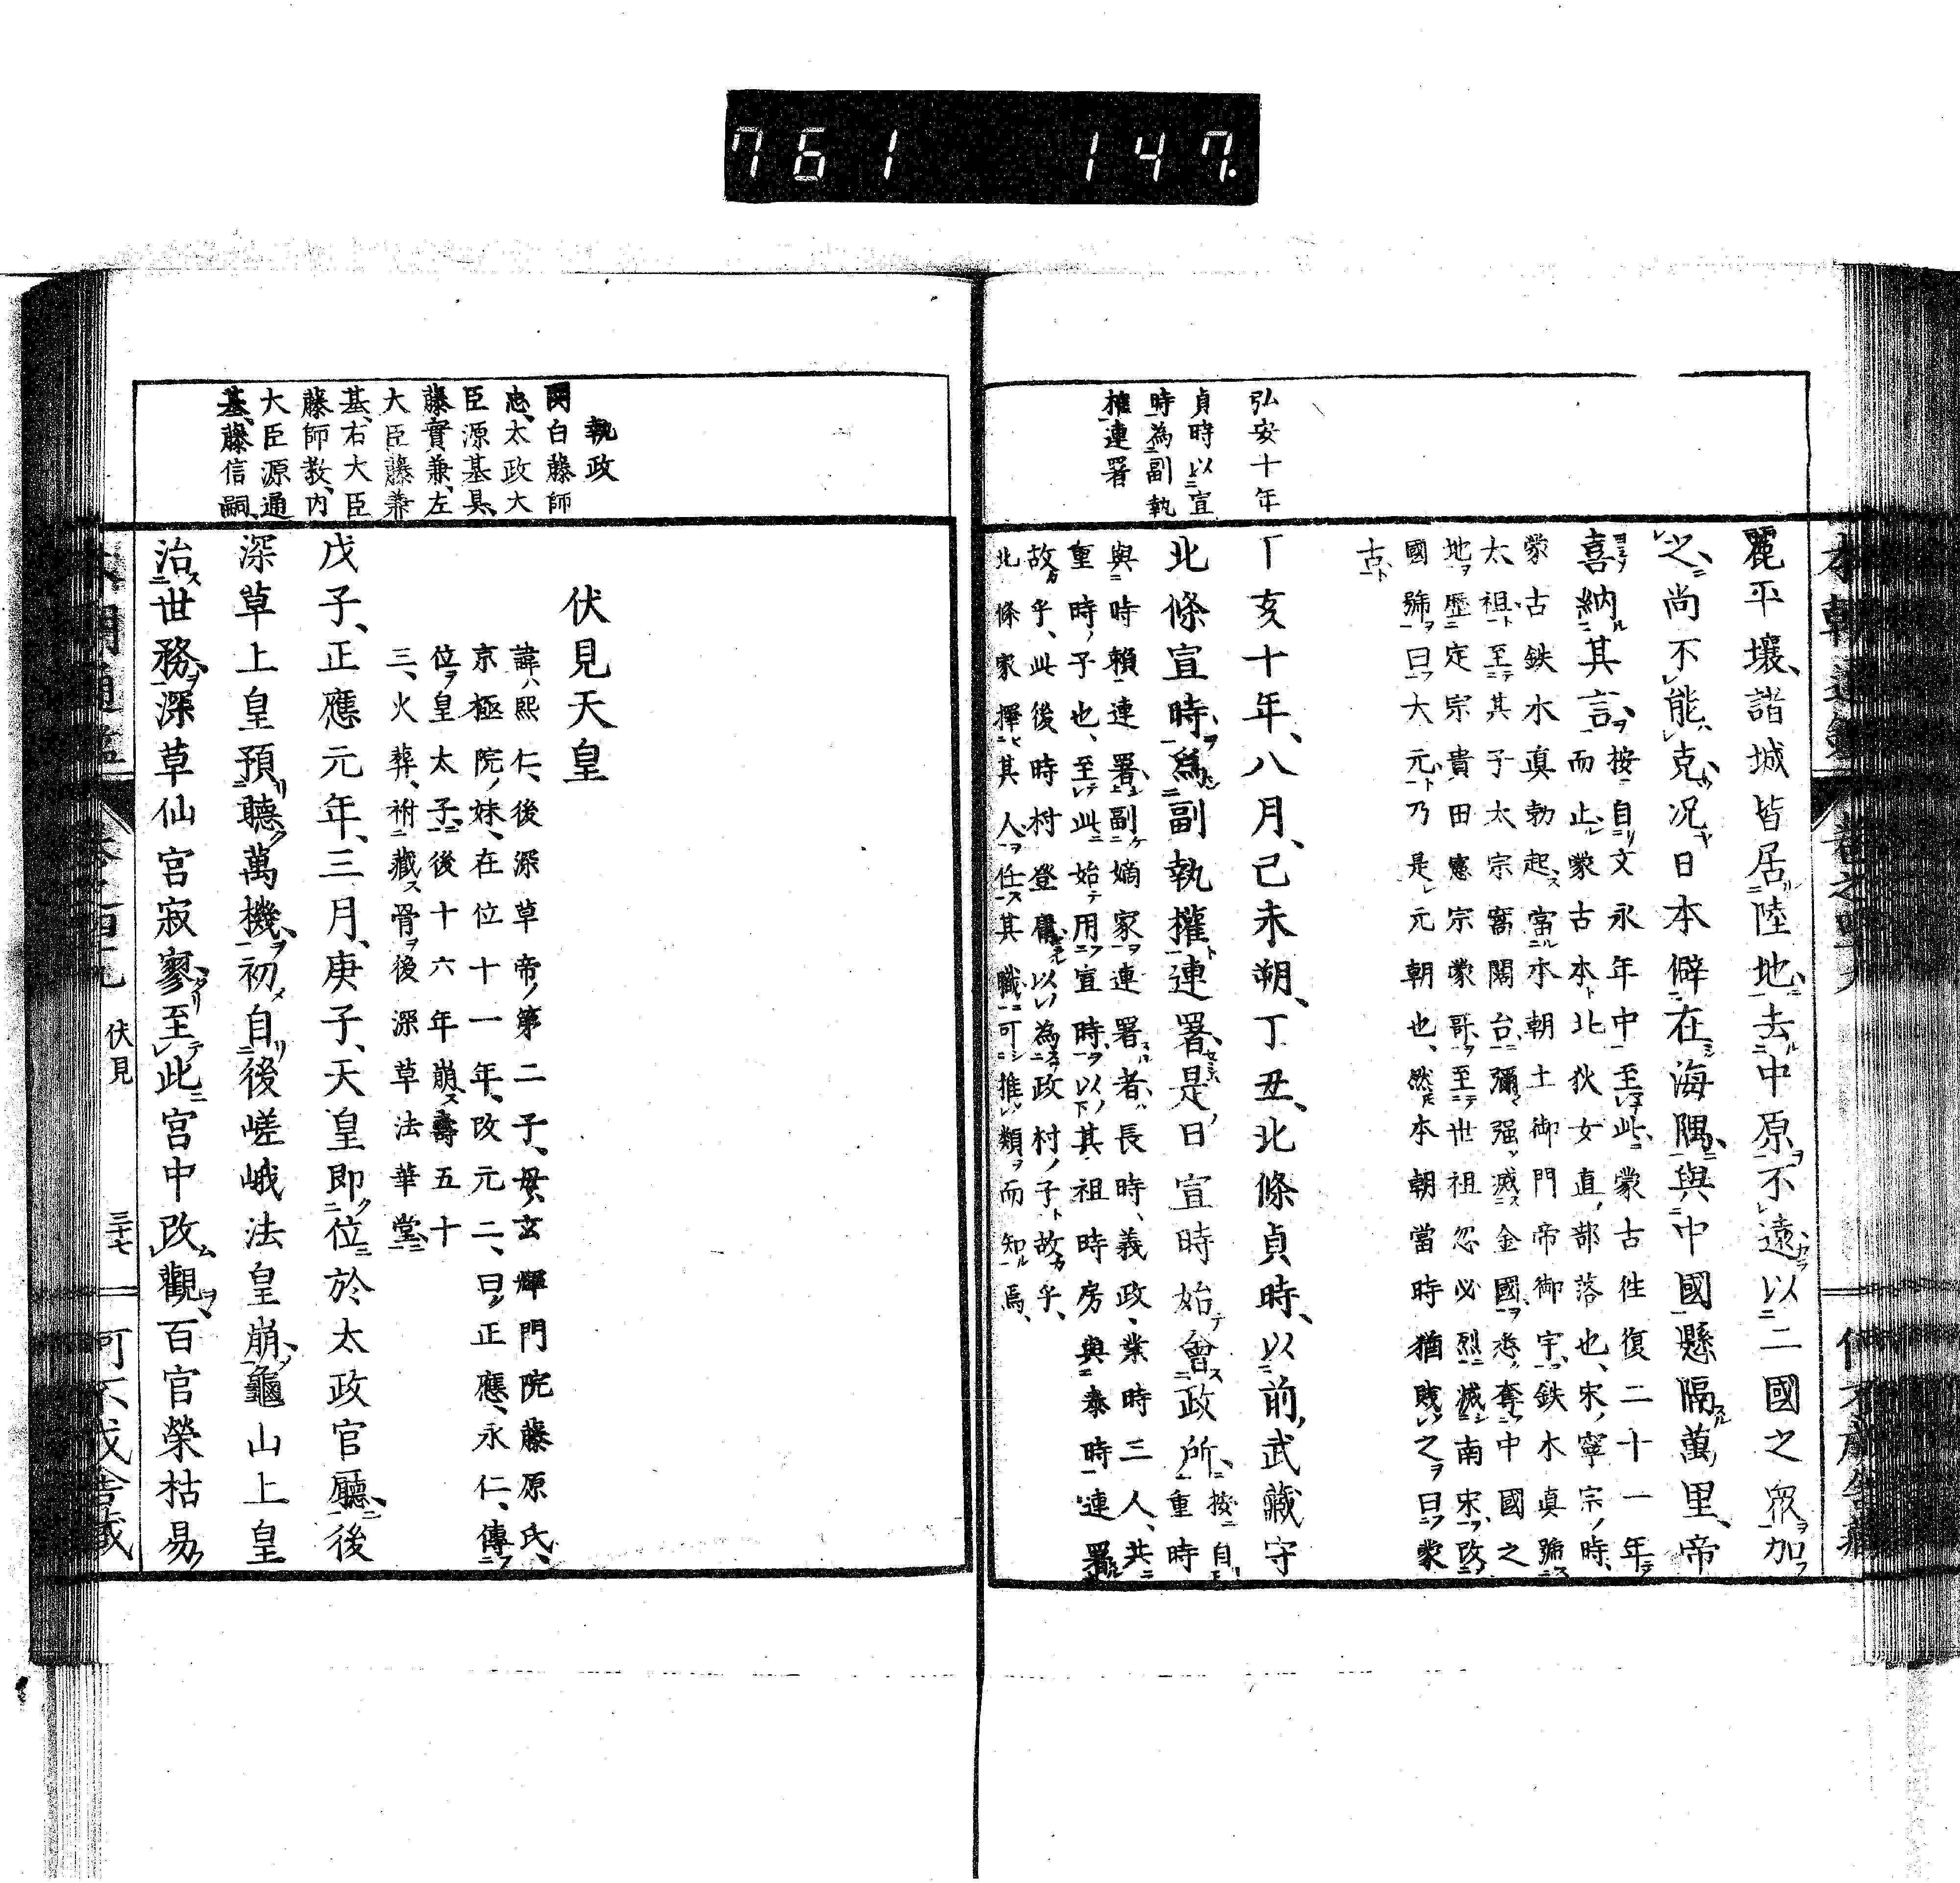 761 147.
弘安十年
貞時以宣
時為副執
權連署
麗平壤、諸城皆居陸地去中原不遠以二國之衆加
之尚不能克况日本僻在海隅與中國懸隔萬里、帝
喜納其言而止
按自文永年中至此蒙古往復二十一年
蒙古本北狄女直部落也、宋寧宗時、
蒙古鉄木真勃起當本朝土御門帝御宇、鉄木真號
太祖至其子太宗窩闊台彌强滅金國悉奪中國之
地歷定宗貴由憲宗蒙哥至世祖忽必烈滅南宋改
國號曰大元乃是元朝也、然本朝當時猶賤之曰蒙
古
丁亥十年、八月、己未朔、丁丑、北條貞時、以前武藏守
北條宣時為副執權連署是日宣時始會政所
按自
重時
與時賴連署副嫡家連署者長時、義政、業時三人、共
重時子也、至此始用宣時以下其祖時房與泰時連署
故乎、此後時村登庸以為政村子故乎、
北條家擇其人任其職可推類而知焉、
執政
関白藤師
忠、太政大
臣源基具、
藤實兼、左
大臣藤兼
基、右大臣
藤師教、内
大臣源通
基、藤信嗣、
伏見天皇
諱熙仁、後深草帝第二子、母玄輝門院藤原氏、
京極院妹、在位十一年、改元二、曰正應、永仁、傳
位皇太子後十六年崩壽五十
三、火葬、祔藏骨後深草法華堂
戊子、正應元年、三月、庚子、天皇即位於太政官廳後
深草上皇預聽萬機初自後嵯峨法皇崩龜山上皇
治世務深草仙宮寂寥至此宮中改觀百官榮枯易
伏見
三十七